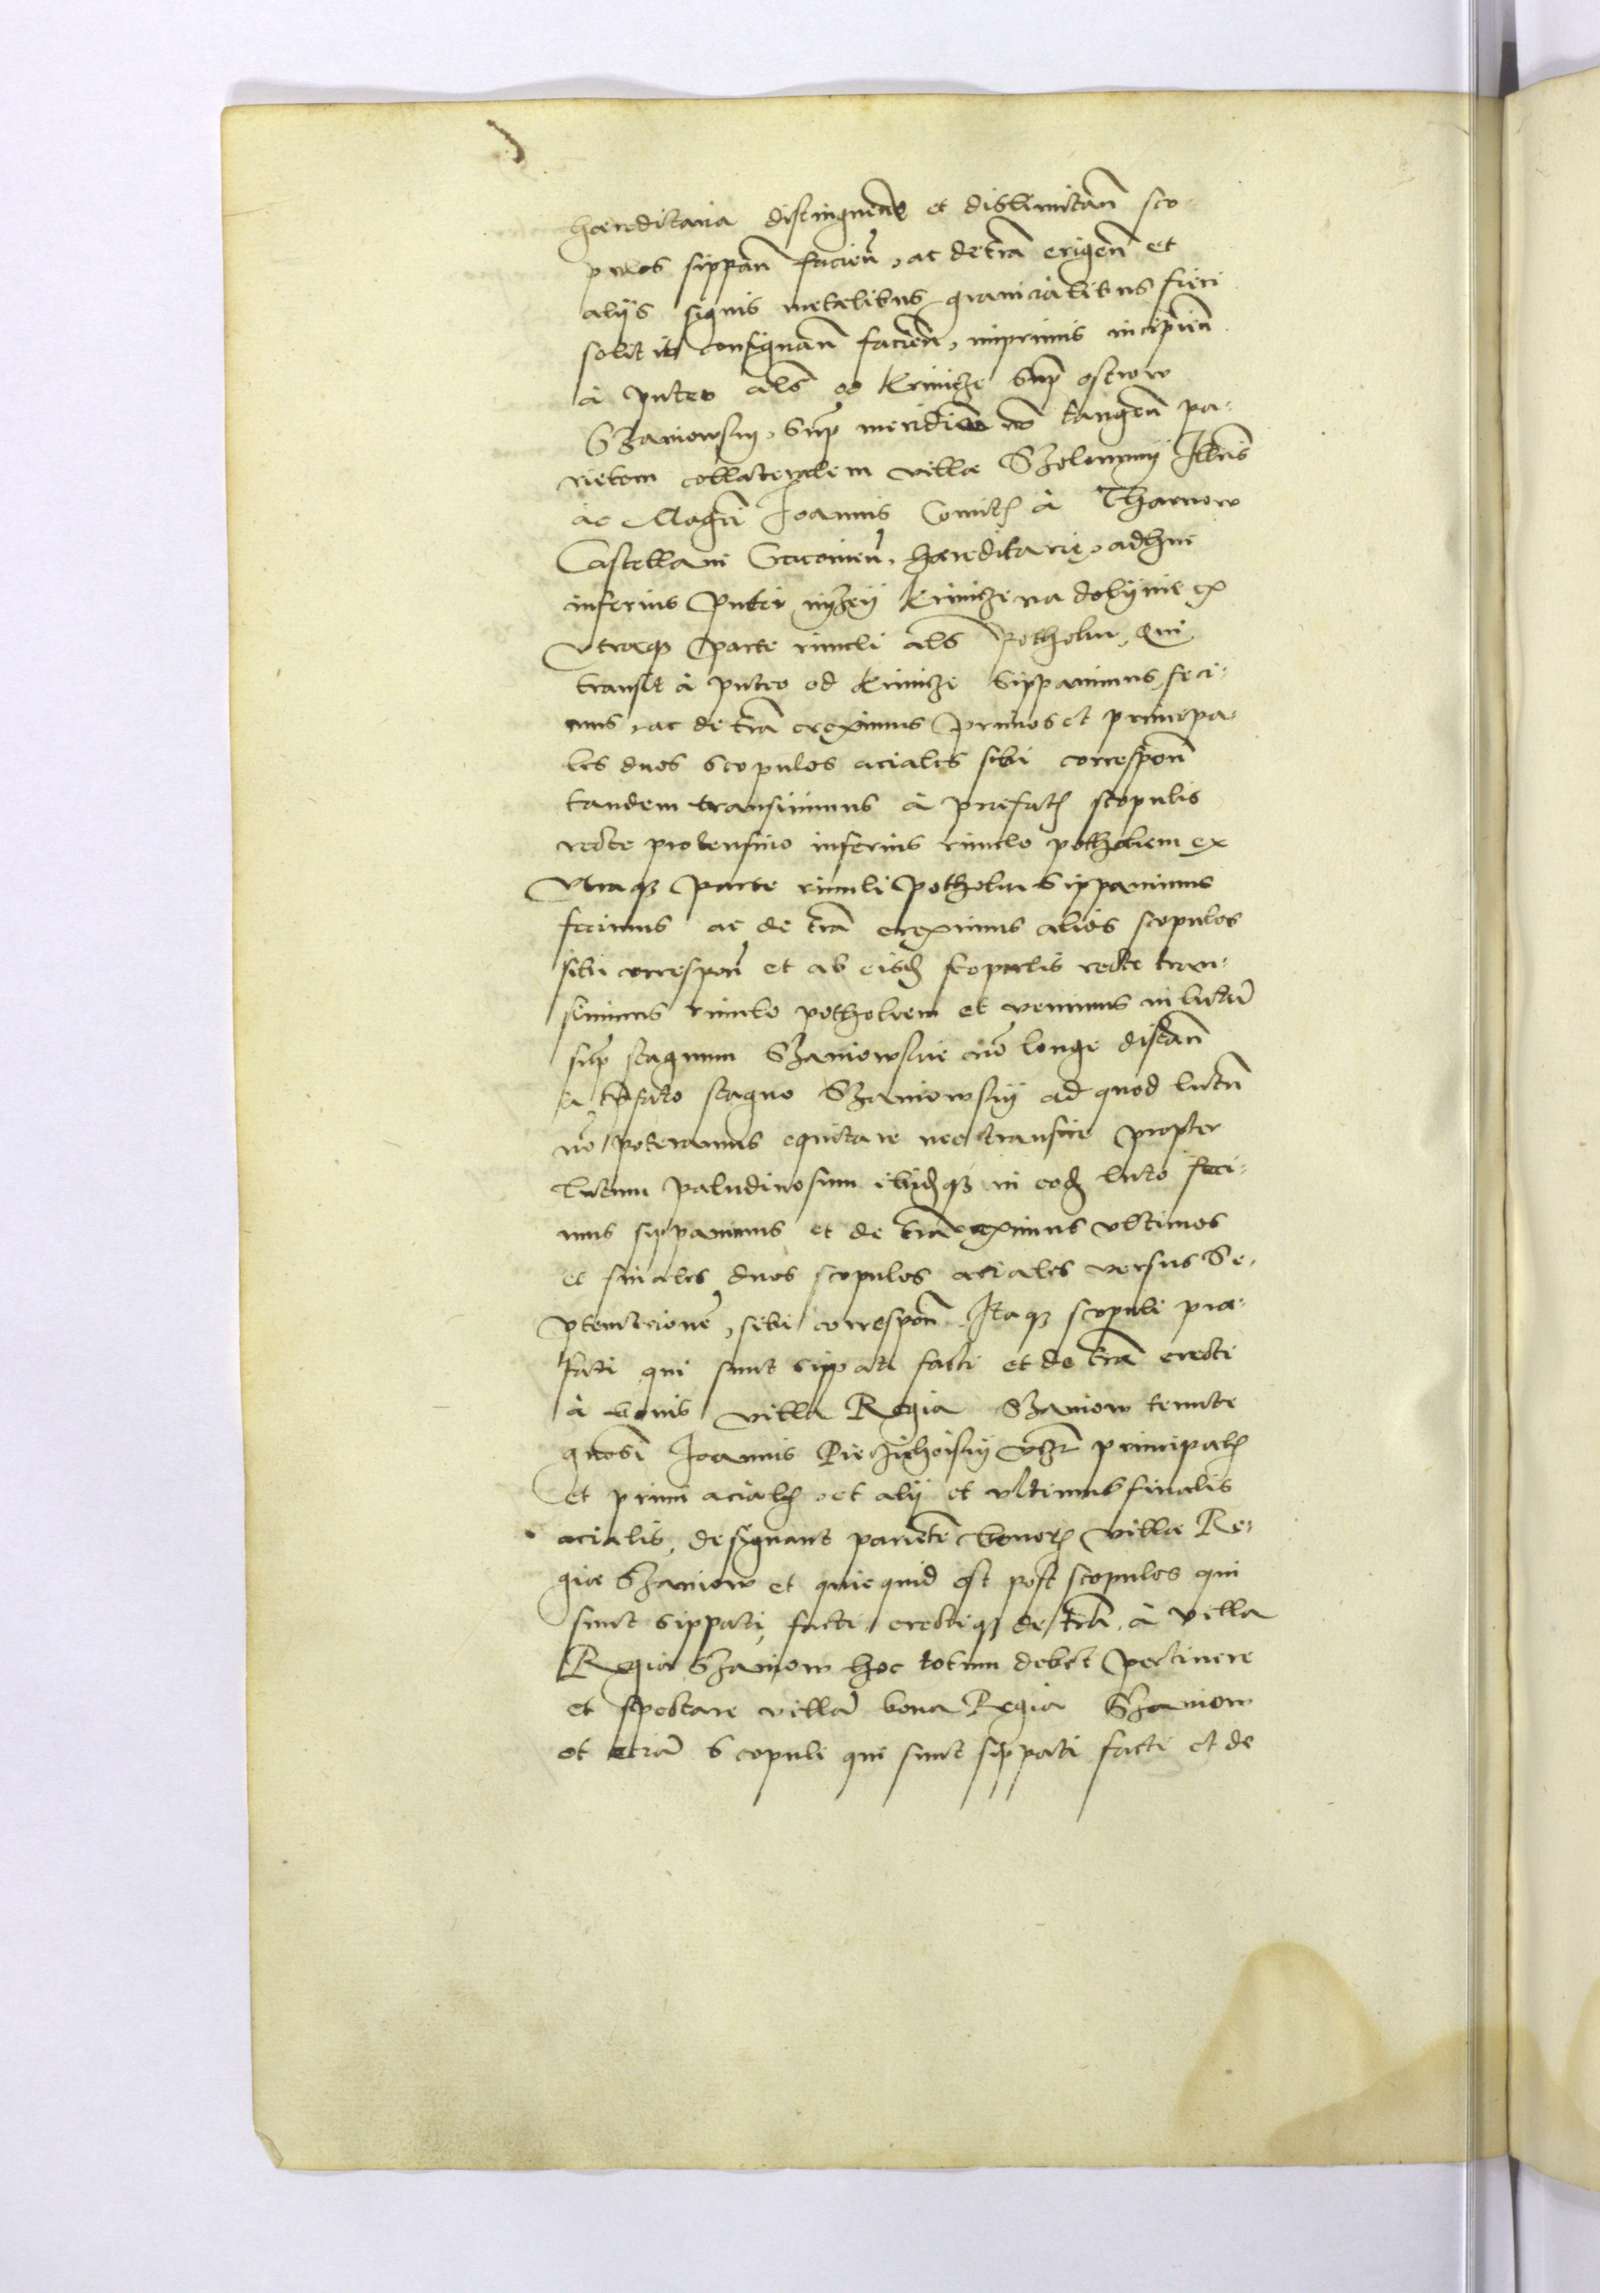 haereditaria distinguen et dislimitan̄ sco-
pulos sippan̄ facien̄, ac de tr̄a erigen̄ et
alijs signis metalibus granicialibus fieri
solitis consignan̄ facien̄, imprimis incipien̄
à puteo al̄s od Krinicze sup̄ ostrow
Szaniowsky, sup̄ meridiem tangen̄ pa-
rietem collateralem villae Szolomyy Ill̄ris
ac Mag̃ci Joannis Comit̄ à Tharnow
Castellani Cracovien̄, haereditarie, adhuc
inferius putei nyzey Krinicze na dolijnie ex
Vtraq̄ parte riuuli al̄s Potholu, qui
transit à puteo od Krinicze sippauimus, feci-
mus, ac de tr̄a ereximus primos et principa-
les duos scopulos aciales sibi correspon̄
tandem transiuimus à praefat̄ scopulis
recte protensiuo inferius riuulo potholiem ex
Vtraq̄ parte riuuli Potholu sippauimus
fecimus ac de tr̄a ereximus alios scopulos
sibi correspon̄ et ab eisd̄ scopulis recte tran-
siuimus riuulo potholiem et venimus in lutū
sup̄ stagnum Szaniowskie nō longe distan̄
a p̄fato stagno Szaniowskij ad quod lutū
nō poteramus equitare nec transire propter
lutum paludinosum ibidq̄ in eod̄ luto feci-
mus sippauimus et de tr̄a ereximus vltimos
et finales duos scopulos aciales versus Se-
ptemtrionē, sibi correspon̄. Itaq̄ scopuli prae-
fati qui sunt sippati facti et de tr̄a erecti
à bonis villa Regia Szaniow tenute
gn̄osi Joannis principal̄
et primi acial̄ et alij et vltimus finalis
acialis, designant parietē bonor̄ villae Re-
giae Szaniow et quicquid est post scopulos qui
sunt sippati, facti erectiq̄ de tr̄a, à villa
Regia Szaniow hoc totum debet pertinere
et spectare villā bona Regia Szaniow
et etiā scopuli qui sunt sippati facti et de